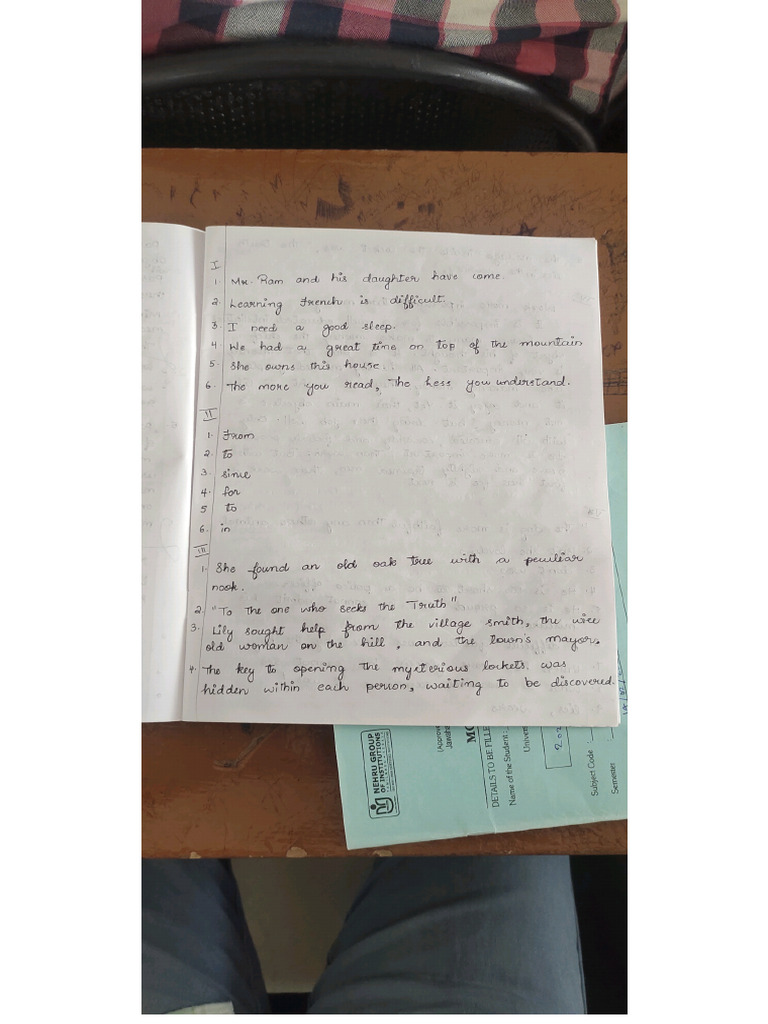 I
1. Mr. Ram and his daughter have come.
2. Learning French is difficult.
3. I need a good sleep.
4. We had a great time on top of the mountain
5. She owns this house.
6. The more you read, the less you understand.
II
1. From
2. to
3. since
4. for
5 to
6. in
III
1. She found an old oak tree with a peculiar
nook.
2. "To the one who seeks the Truth"
3. Lily sought help from the village smith, the wise
old woman on the hill, and the town's mayor.
4. The key to opening the mysterious lockets was
hidden within each person, waiting to be discovered.
NEHRU GROUP
OF INSTITUTIONS
DETAILS TO BE FILLE
Name of the Student :
Univer
Subject Code :
Semester